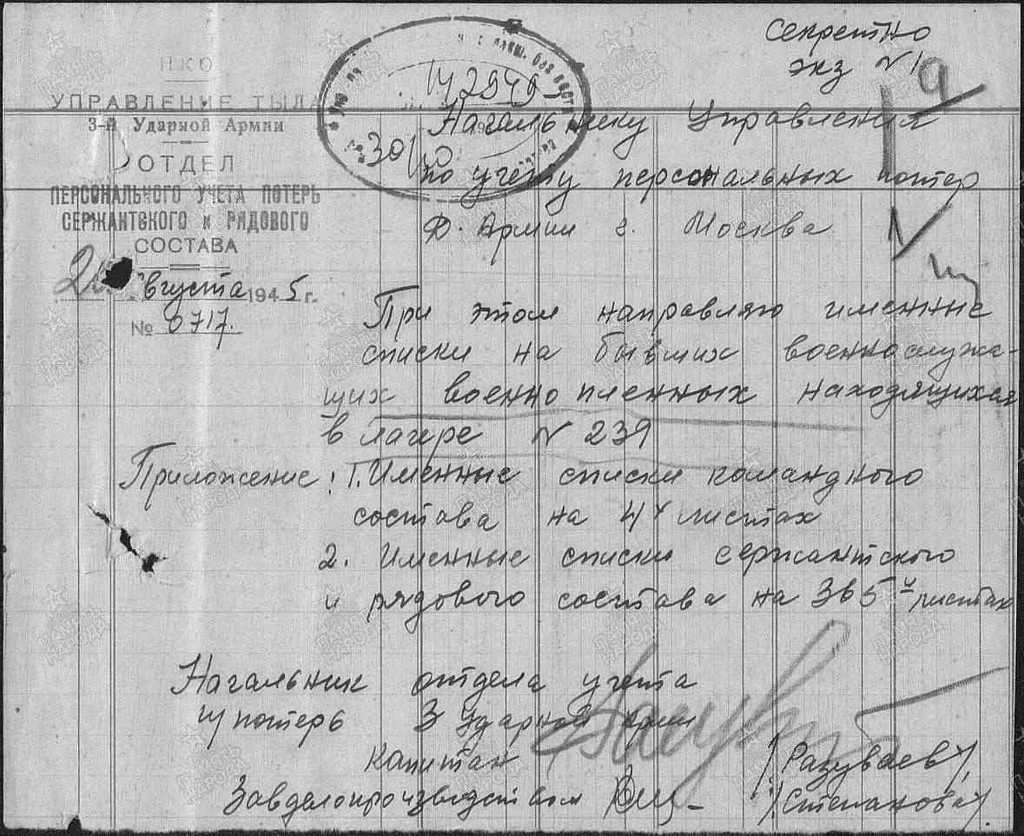 Секретно
экз № 1
НКО
УПРАВЛЕНИЕ ТЫЛА
3-й Ударной Армии
ОТДЕЛ
ПЕРСОНАЛЬНОГО УЧЕТА ПОТЕРЬ
СЕРЖАНТСКОГО и РЯДОВОГО
СОСТАВА
августа 1945 г.
№ 0717.
142949
Начальнику Управления
по учету персональных потер
Д. Армии г. Москва
При этом направляю именные
списки на бывших военнослужа-
щих военнопленных находящихся
в лагере № 239
Приложение: 1. Именные списки командного
состава на 4х листах
2. Именные списки сержантского
и рядового состава на 365 и листах
Начальник отдела учета
потерь 3 Ударной Армии
Капитан /Разуваев/
Завделопроизводством /Степанова/